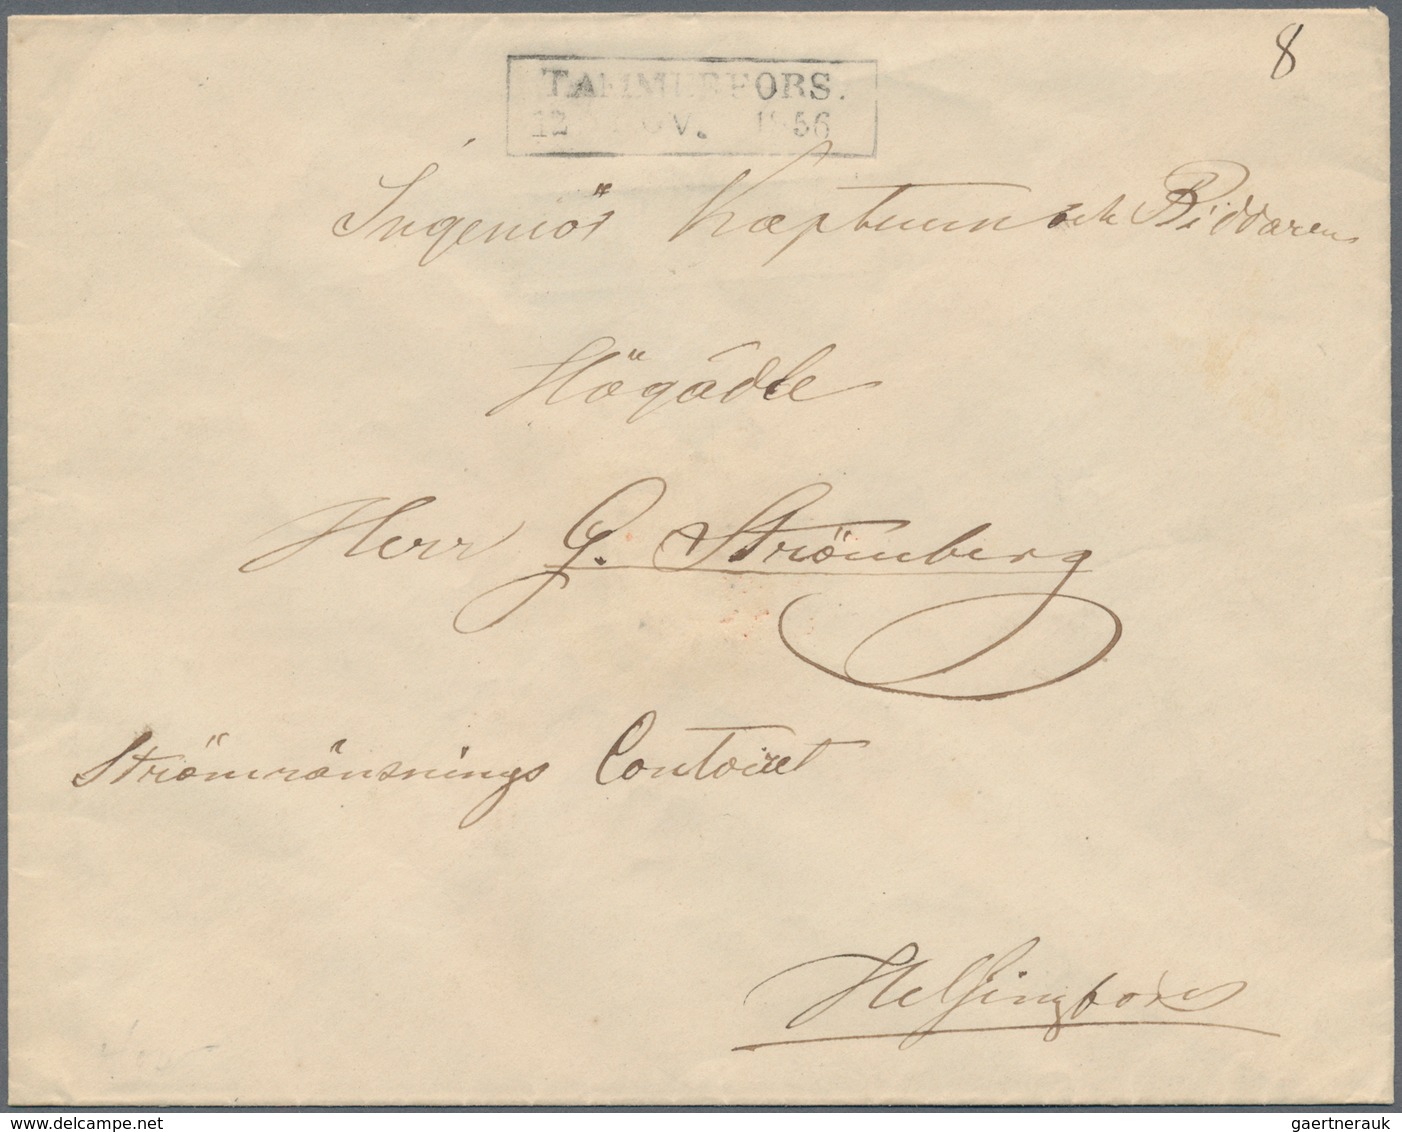 8
TAMMERFORS.
12 NOV. 1856
Ingeniör Kaptenen och Riddaren
Högädle
Herr G. Strömberg
Strömränsnings Contoiret
Helsingfors
www.delcampe.net
gaertnerauk